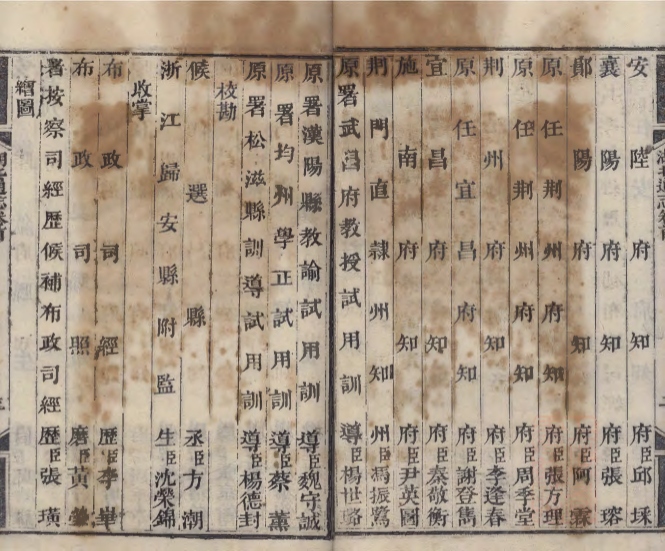 安陸府知府臣邱埰
襄陽府知府臣張瑢
鄖陽府知府臣阿霖
原任荆州府知府臣張方理
原任荆州府知府臣周季堂
荆州府知府臣李逢春
原任宜昌府知府臣謝登雋
宜昌府知府臣秦敬衡
施南府知府臣尹英圖
荆門直隸州知州臣馮振鷺
原署武昌府教授試用訓導臣楊世璐
原署漢陽縣教諭試用訓導臣魏守誠
原署均州學正試用訓導臣蔡薰
原署松滋縣訓導試用訓導臣楊德封
校勘
候選縣丞臣方潮
浙江歸安縣附監生臣沈榮錦
收掌
布政司經歷臣李畢
布政司照磨臣黃
署按察司經歷候補布政司經歷臣張璜
繪圖